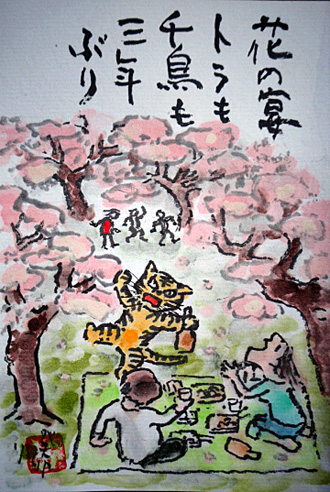 花の宴
トラも
千鳥も
三年
ぶり